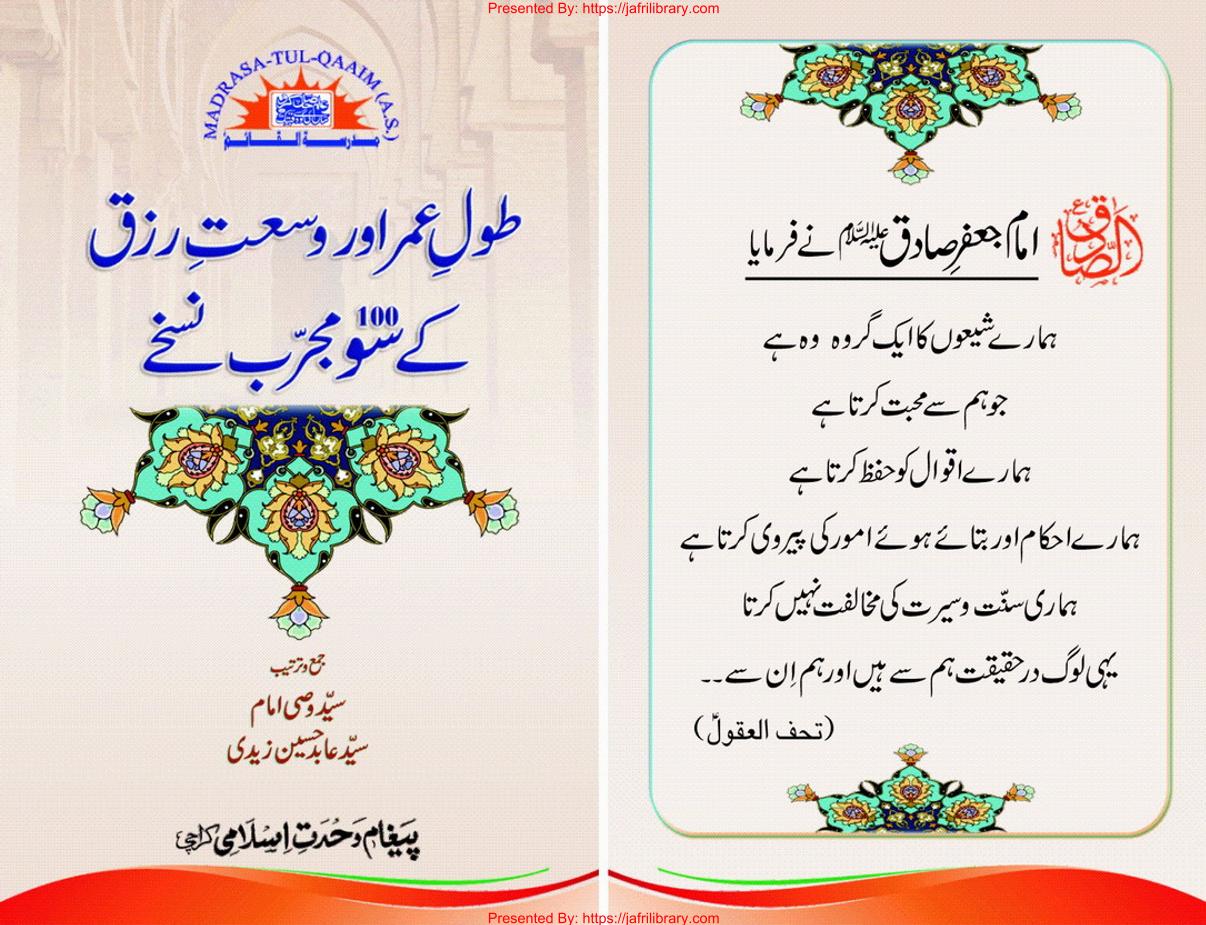 Presented By: https://jafrilibrary.com
MADRASA-TUL-QAAIM (A.S.)
مدرسة القائم
طولِ عمر اور وسعتِ رزق
کے سو 100 مجرّب نسخے
جمع و ترتیب
سیّد وصی امام
سیّد عابد حسین زیدی
پیغام وحدتِ اسلامی کراچی
الصّادق ع
امام جعفرِ صادق علیہ السلام نے فرمایا
ہمارے شیعوں کا ایک گروہ وہ ہے
جو ہم سے محبت کرتا ہے
ہمارے اقوال کو حفظ کرتا ہے
ہمارے احکام اور بتائے ہوئے امور کی پیروی کرتا ہے
ہماری سنّت و سیرت کی مخالفت نہیں کرتا
یہی لوگ در حقیقت ہم سے ہیں اور ہم اِن سے۔۔
(تحف العقول)
Presented By: https://jafrilibrary.com